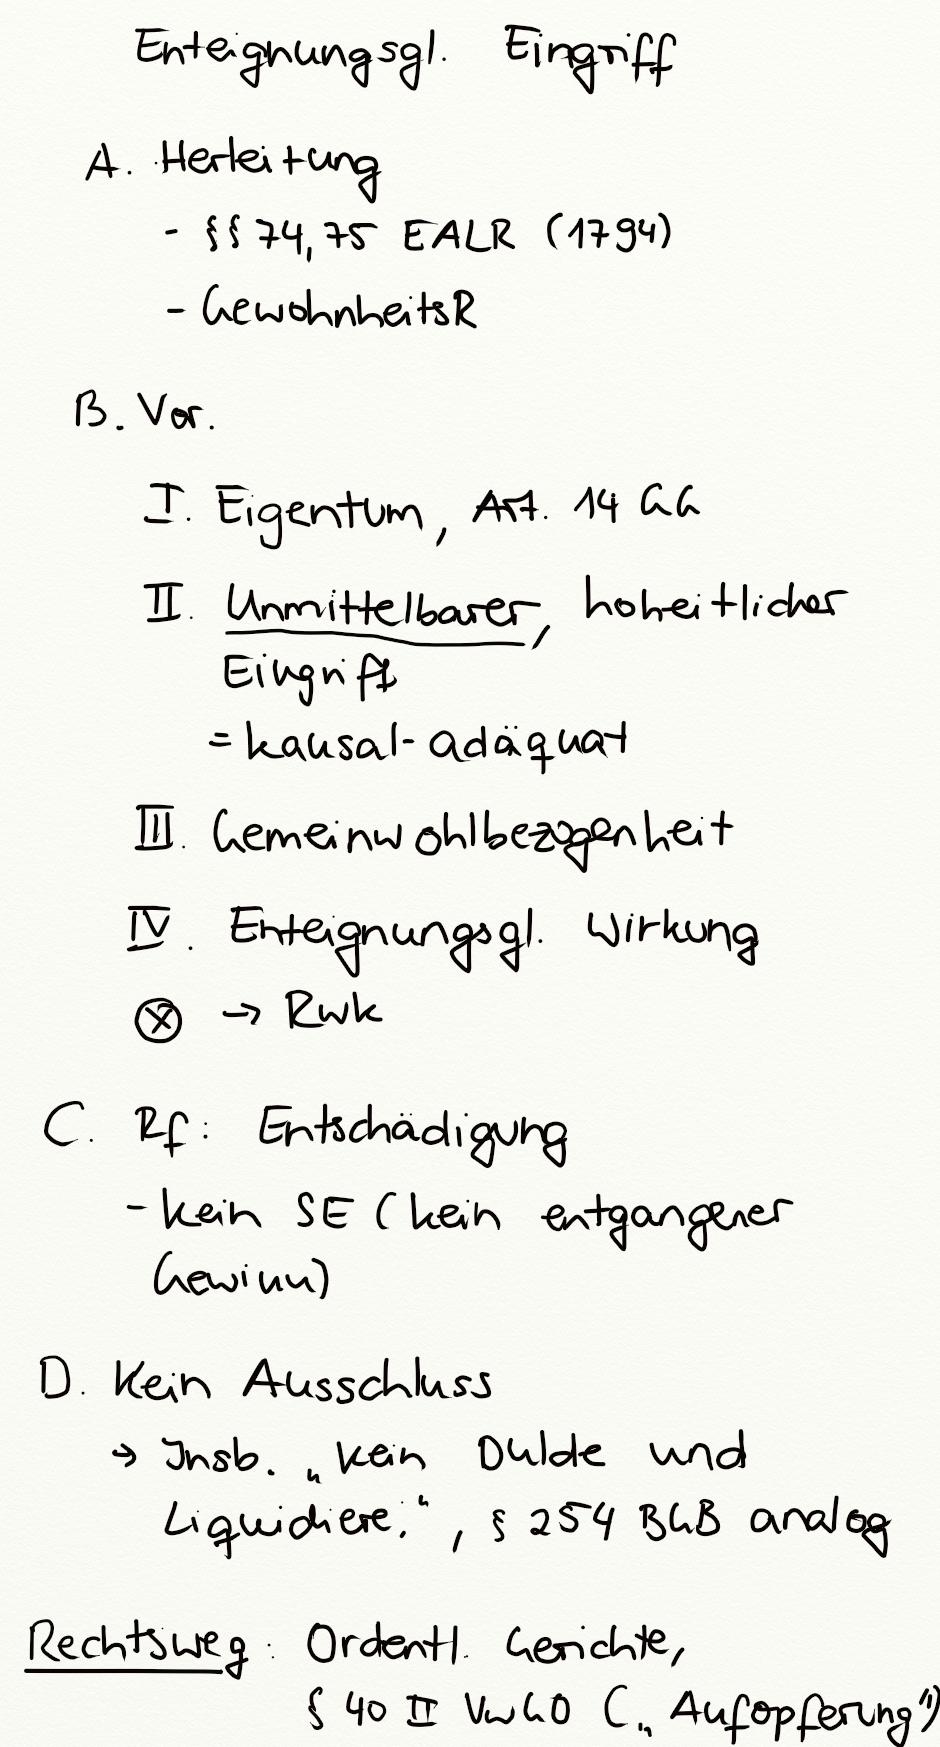 Enteignungsgl. Eingriff
A. Herleitung
- §§ 74, 75 EALR (1794)
- GewohnheitsR
B. Vor.
I. Eigentum, Art. 14 GG
II. Unmittelbarer, hoheitlicher
Eingriff
= kausal-adäquat
III. Gemeinwohlbezogenheit
IV. Enteignungsgl. Wirkung
ⓧ → Rwk
C. Rf: Entschädigung
- kein SE (kein entgangener
Gewinn)
D. Kein Ausschluss
→ Insb. „kein Dulde und
Liquidiere.“, § 254 BGB analog
Rechtsweg: Ordentl. Gerichte,
§ 40 II VwGO („Aufopferung“)